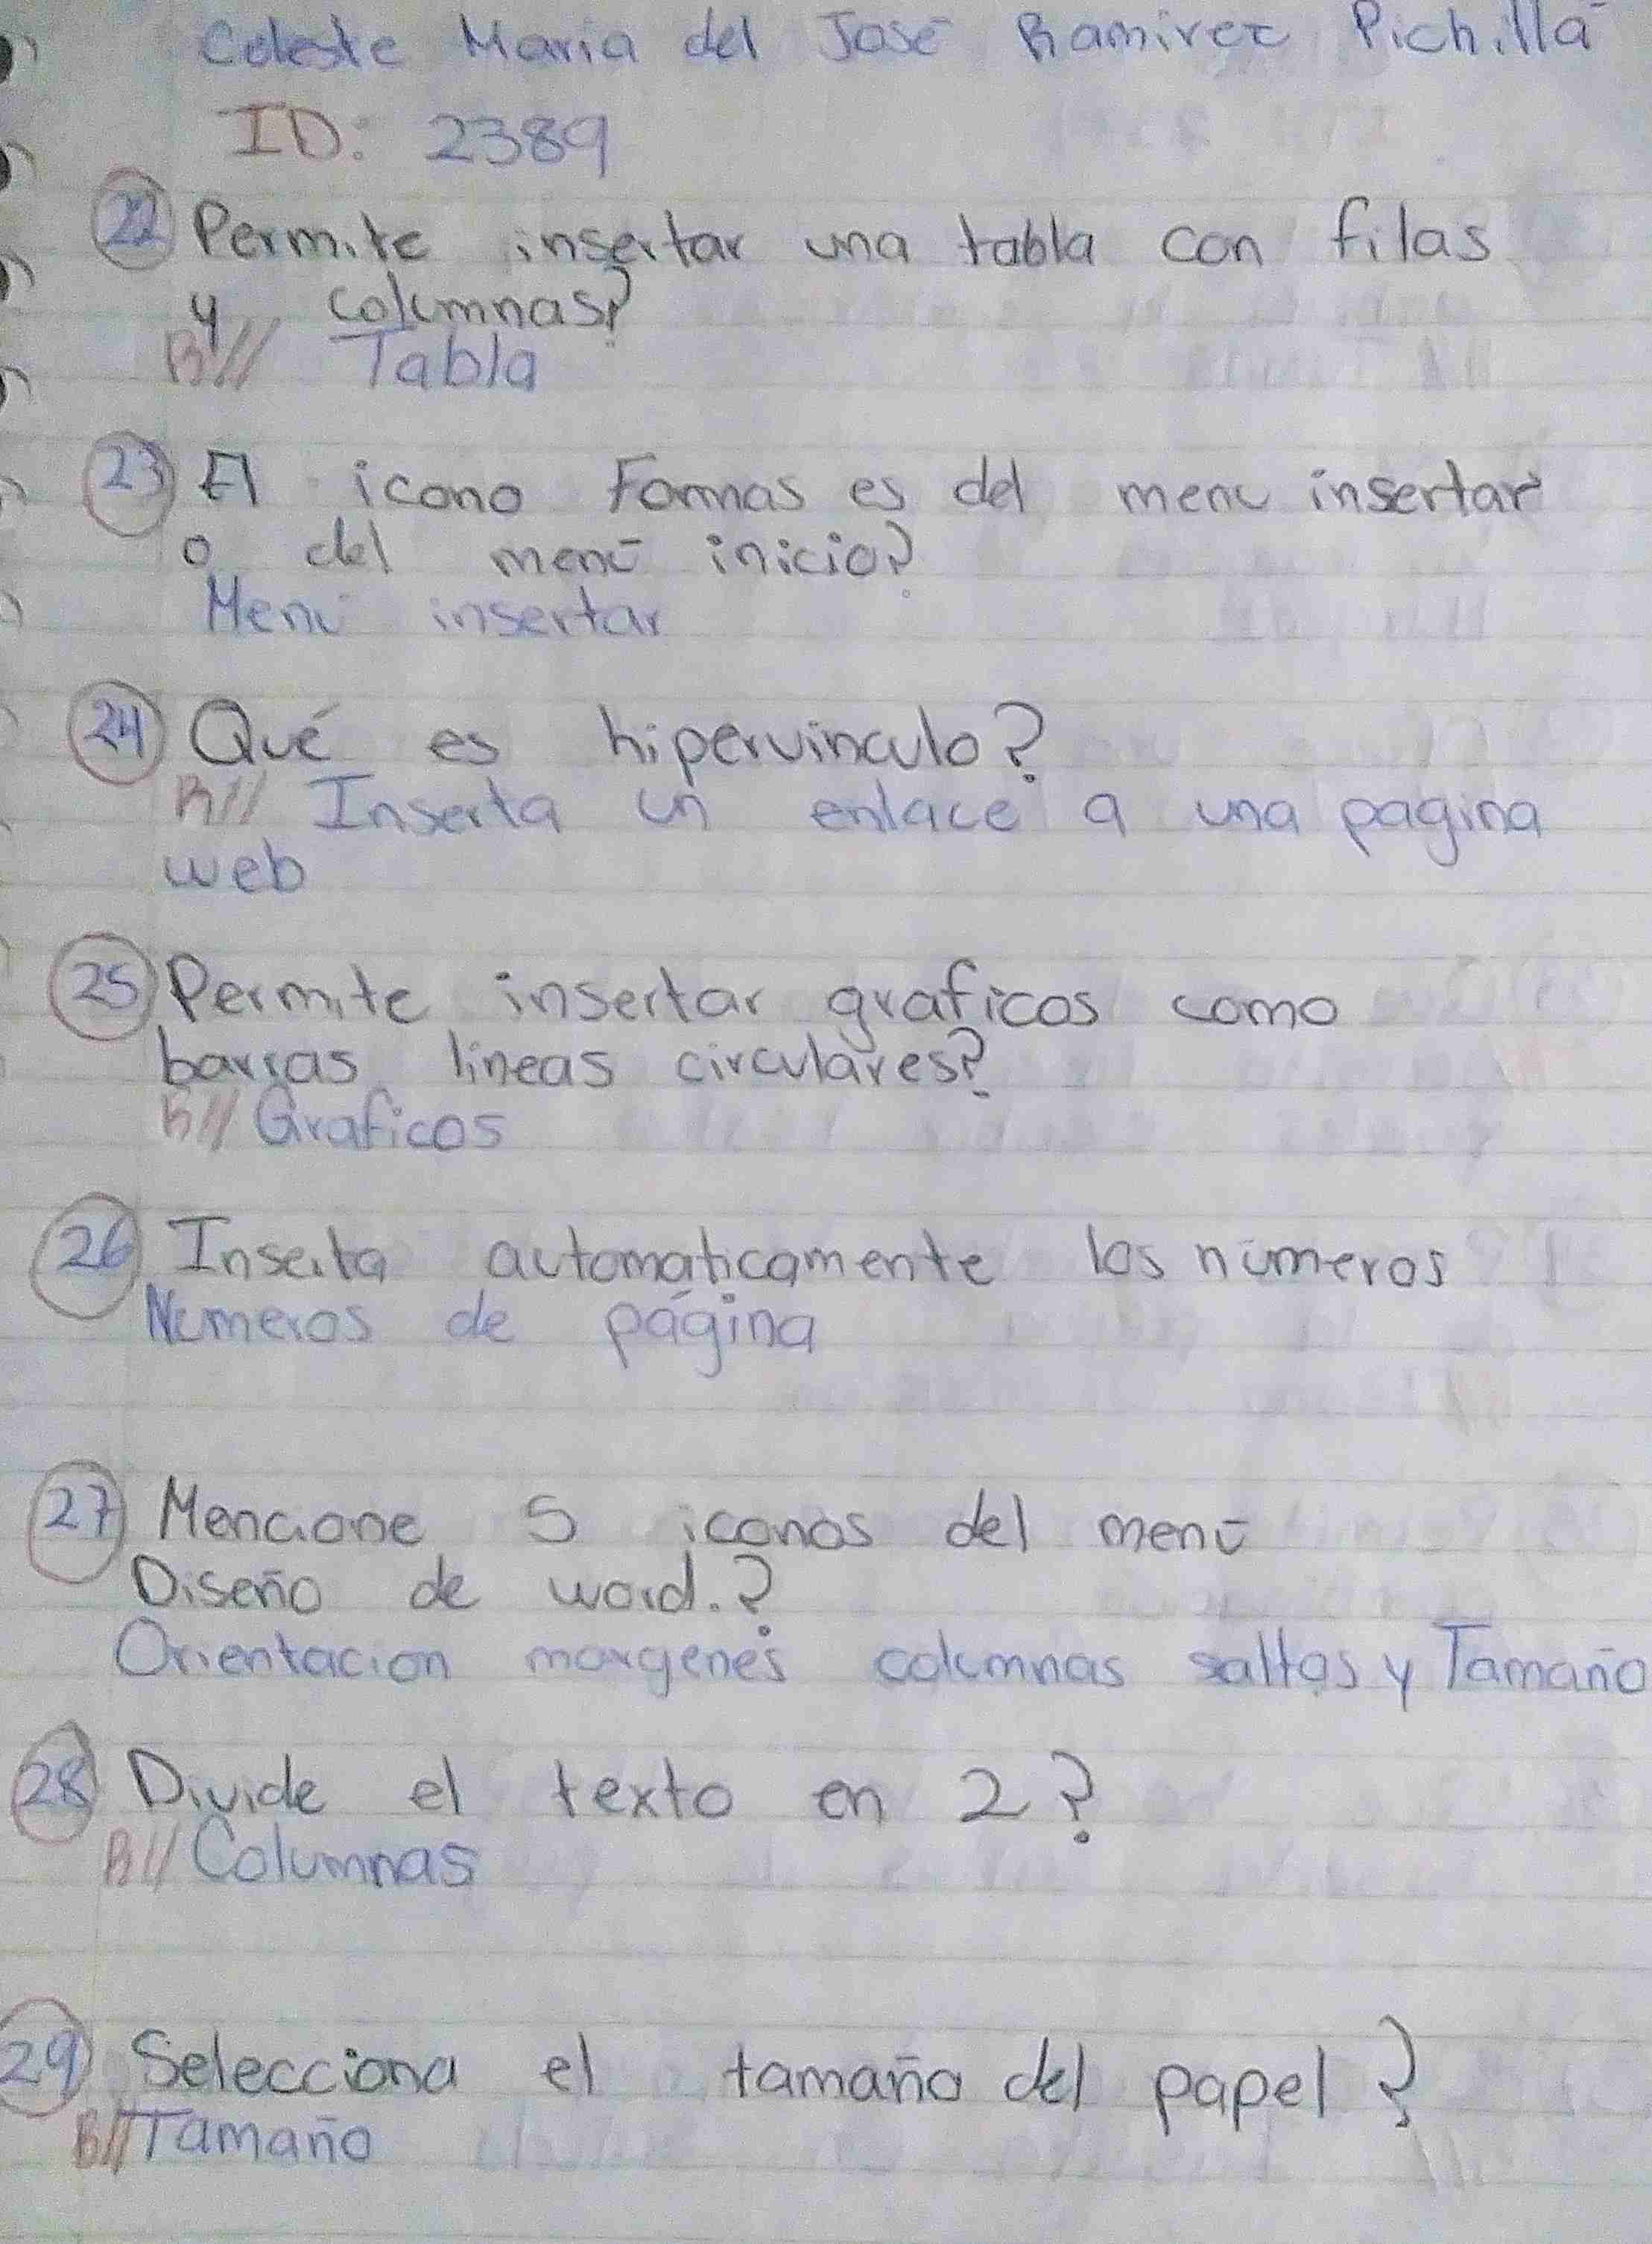 Celeste Maria del José Ramirez Pichillá
ID: 2389
22 Permite insertar una tabla con filas
y columnas?
R// Tabla
23 El icono Formas es del menu insertar
o del menú inicio?
Menú insertar
24 Qué es hipervinculo?
R// Inserta un enlace a una pagina
web
25 Permite insertar graficos como
barras lineas circulares?
R// Graficos
26 Inserta automaticamente los números
Numeros de página
27 Mencione 5 iconos del menú
Diseño de word.?
Orientacion margenes columnas saltos y Tamaño
28 Divide el texto en 2?
R// Columnas
29 Selecciona el tamaño del papel?
R// Tamaño